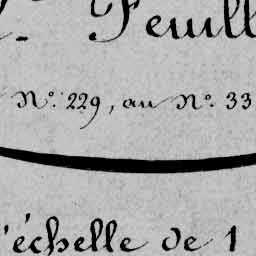 Feuill
N°. 229, au N°. 33
l'échelle de 1